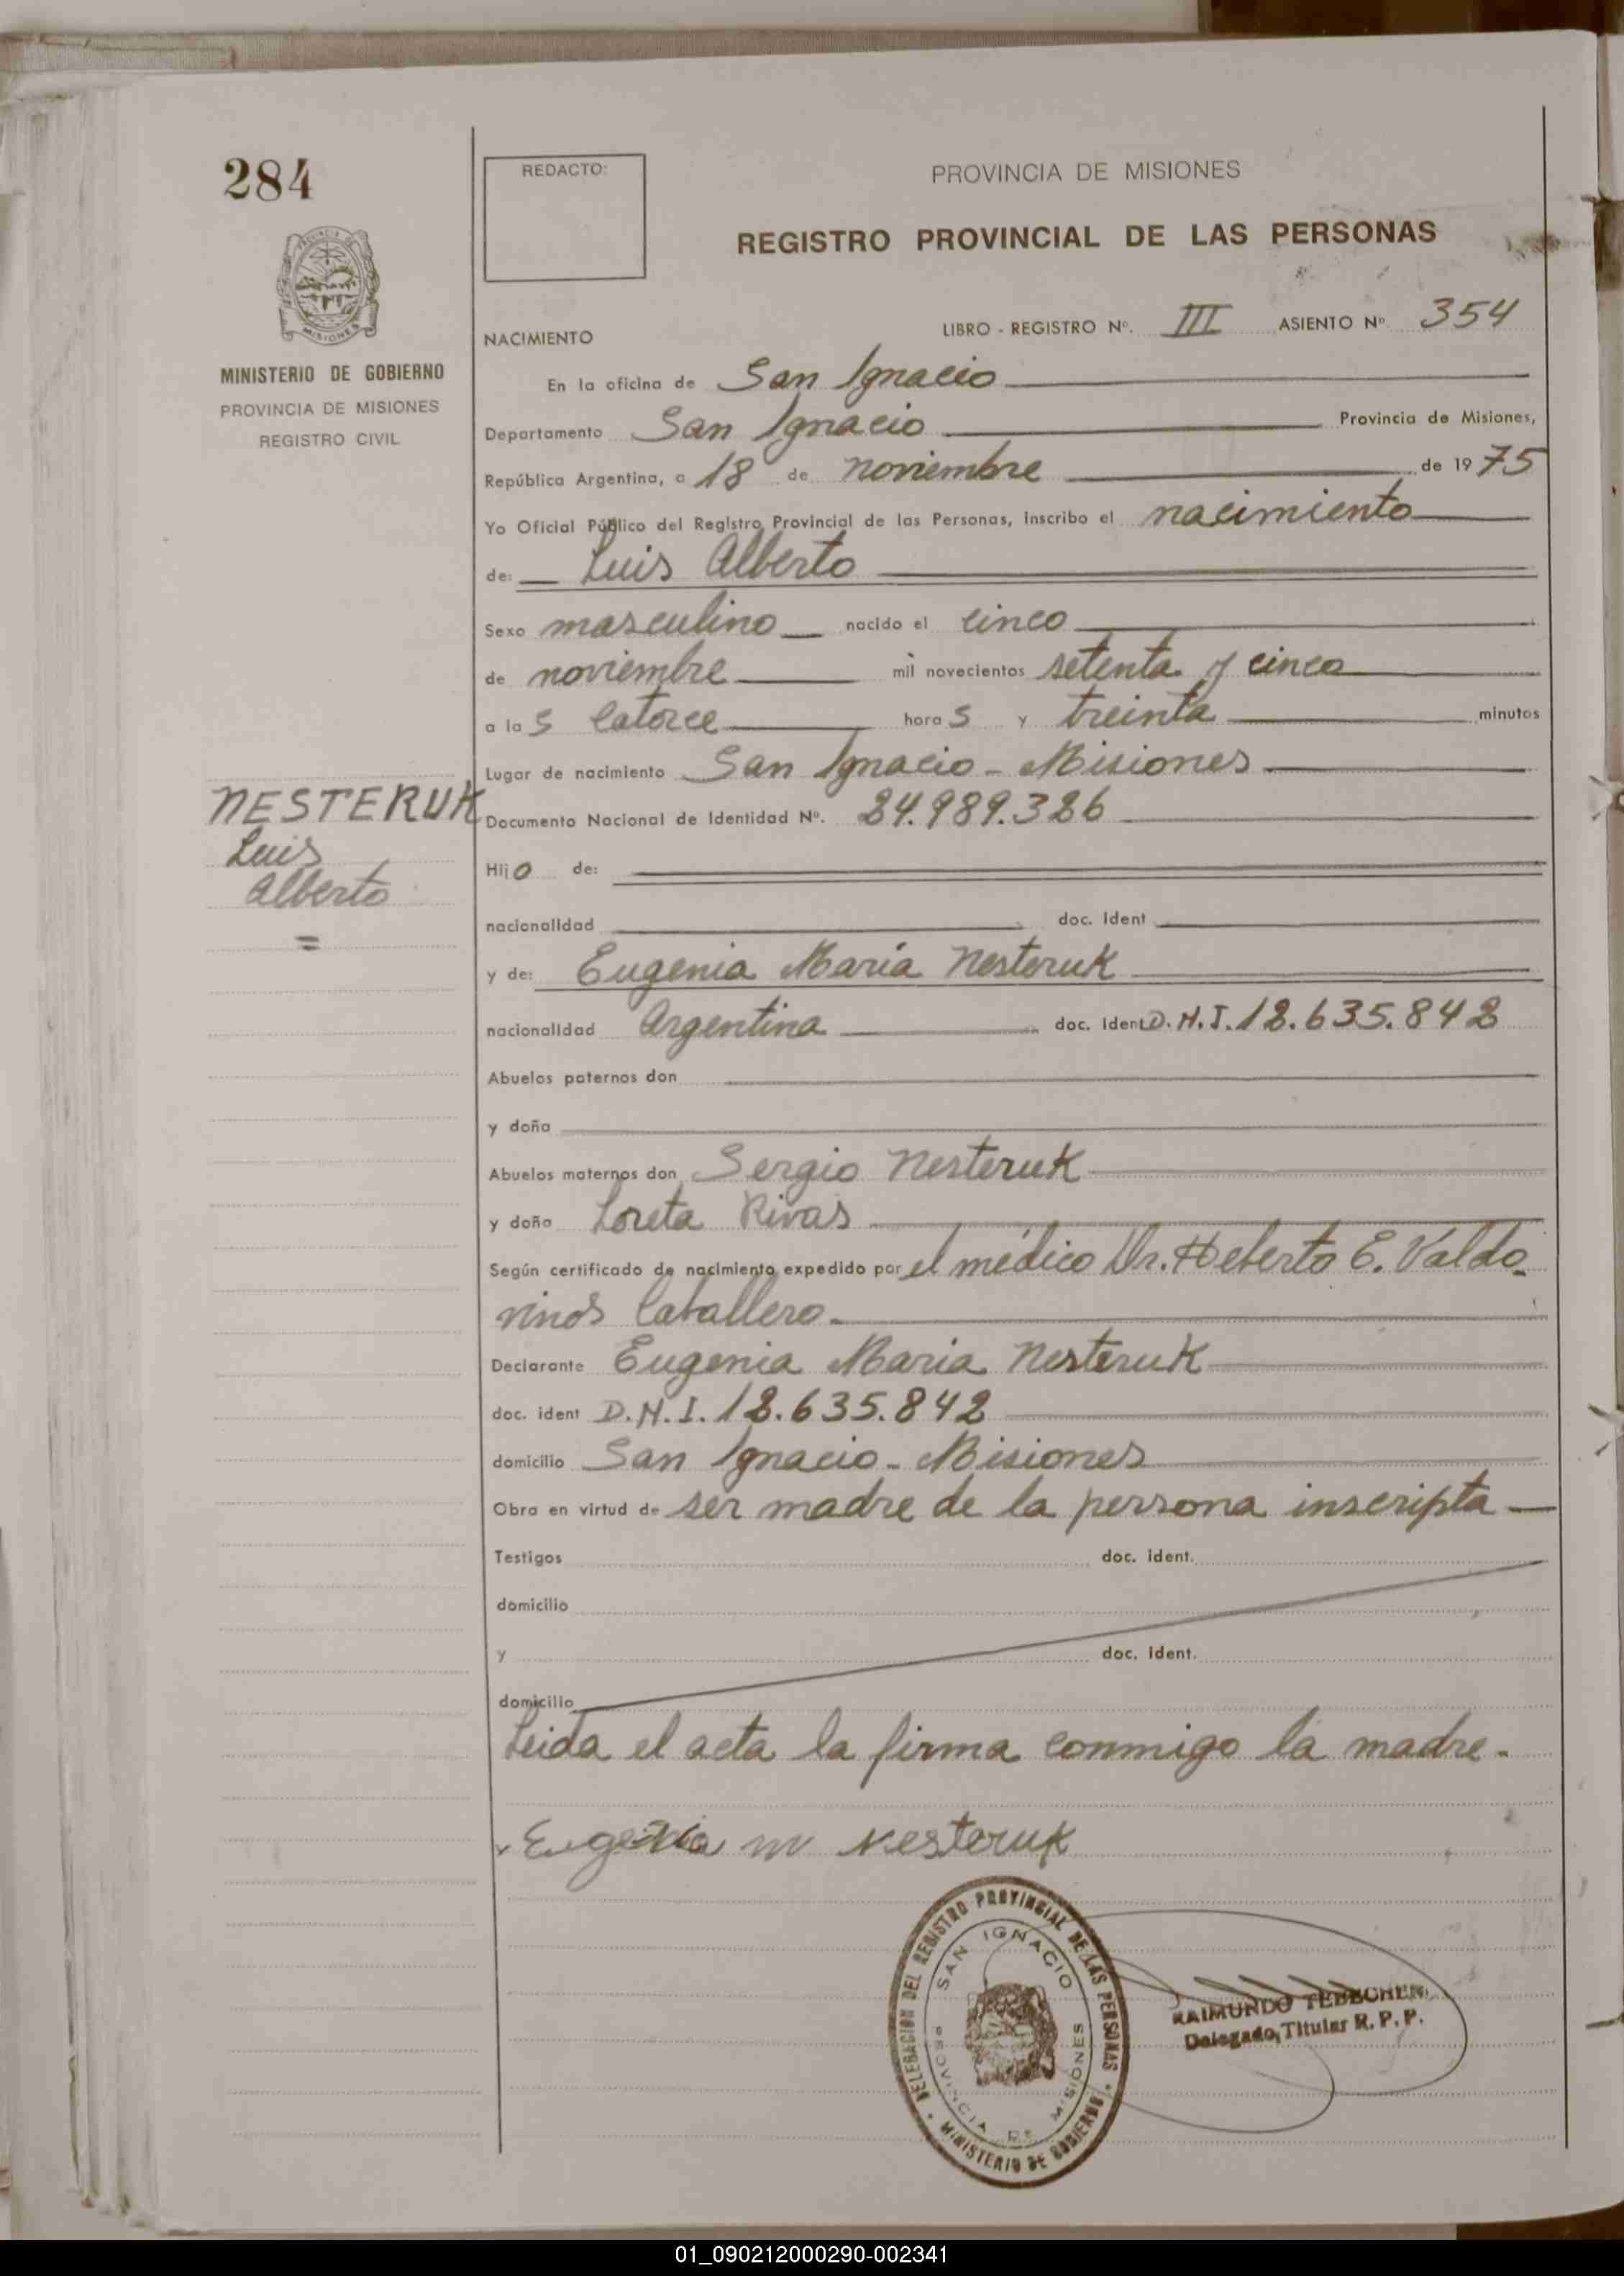 284
REDACTO:
PROVINCIA DE MISIONES
REGISTRO PROVINCIAL DE LAS PERSONAS
MISIONES
MINISTERIO DE GOBIERNO
PROVINCIA DE MISIONES
REGISTRO CIVIL
NACIMIENTO LIBRO - REGISTRO Nº. III ASIENTO Nº 354
En la oficina de San Ignacio
Departamento San Ignacio Provincia de Misiones,
República Argentina, a 18 de noviembre de 1975
Yo Oficial Público del Registro Provincial de las Personas, inscribo el nacimiento
de: Luis Alberto
Sexo masculino nacido el cinco
de noviembre mil novecientos setenta y cinco
a las catorce horas y treinta minutos
Lugar de nacimiento San Ignacio - Misiones
NESTERUK
Luis
Alberto
=
Documento Nacional de Identidad Nº. 24.989.326
Hijo de:
nacionalidad doc. ident
y de: Eugenia María Nesteruk
nacionalidad Argentina doc. ident D.N.I. 12.635.842
Abuelos paternos don
y doña
Abuelos maternos don Sergio Nesteruk
y doña Loreta Rivas
Según certificado de nacimiento expedido por el médico Dr. Heberto E. Valdo-
vinos Caballero.
Declarante Eugenia Maria Nesteruk
doc. ident D.N.I. 12.635.842
domicilio San Ignacio - Misiones
Obra en virtud de ser madre de la persona inscripta
Testigos doc. ident.
domicilio
y doc. ident.
domicilio
Leida el acta la firma conmigo la madre.
Eugenia M Nesteruk
DELEGACION DEL REGISTRO PROVINCIAL DE LAS PERSONAS
MINISTERIO DE GOBIERNO
SAN IGNACIO
PROVINCIA DE MISIONES
RAIMUNDO
Delegado Titular R. P. P.
01_090212000290-002341